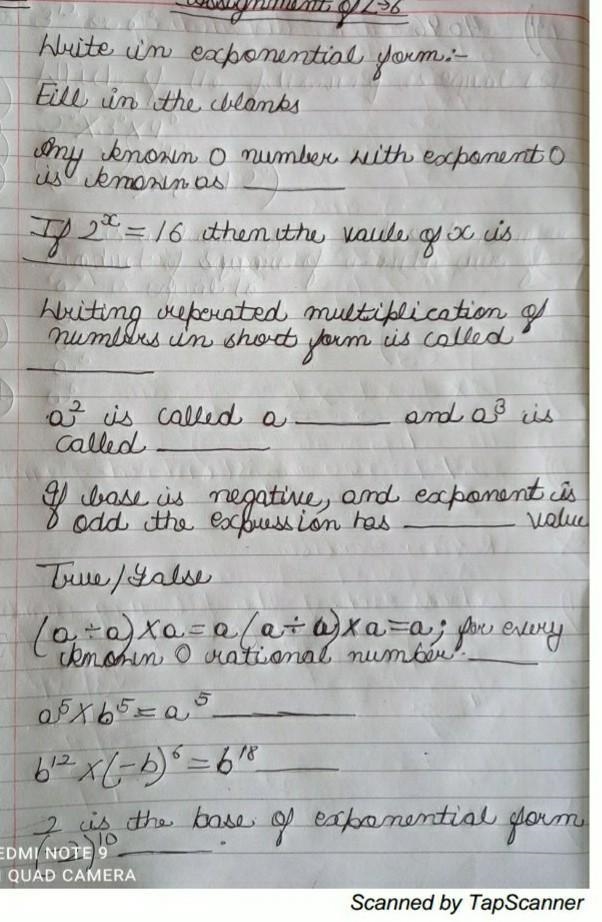 Assignment of L→6
Write in exponential form:-
Fill in the blanks
Any known 0 number with exponent 0
is known as ______
If 2^x = 16 then the vaule of x is
______
Writing reperated multiplication of
numbers in short form is called
______
a² is called a ______ and a³ is
called ______
If base is negative, and exponent is
odd the expression has ______ value
True/False
(a÷a)×a=a(a÷a)×a=a; for every
known 0 rational number. ______
a⁵×b⁵=a⁵ ______
b¹²×(-b)⁶=b¹⁸ ______
2 is the base of exponential form
(-2)¹⁰ ______.
REDMI NOTE 9
AI QUAD CAMERA
Scanned by TapScanner